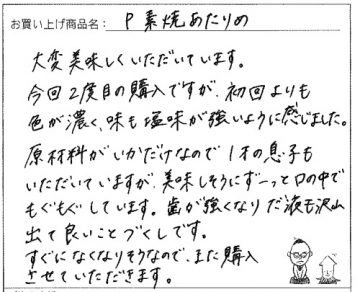 お買い上げ商品名： P 素焼あたりめ
大変美味しくいただいています。
今回2度目の購入ですが、初回よりも
色が濃く、味も塩味が強いように感じました。
原材料がいかだけなので1才の息子も
いただいていますが、美味しそうにずーっと口の中で
もぐもぐしています。歯が強くなりだ液も沢山
出て良いことづくしです。
すぐになくなりそうなので、また購入
させていただきます。